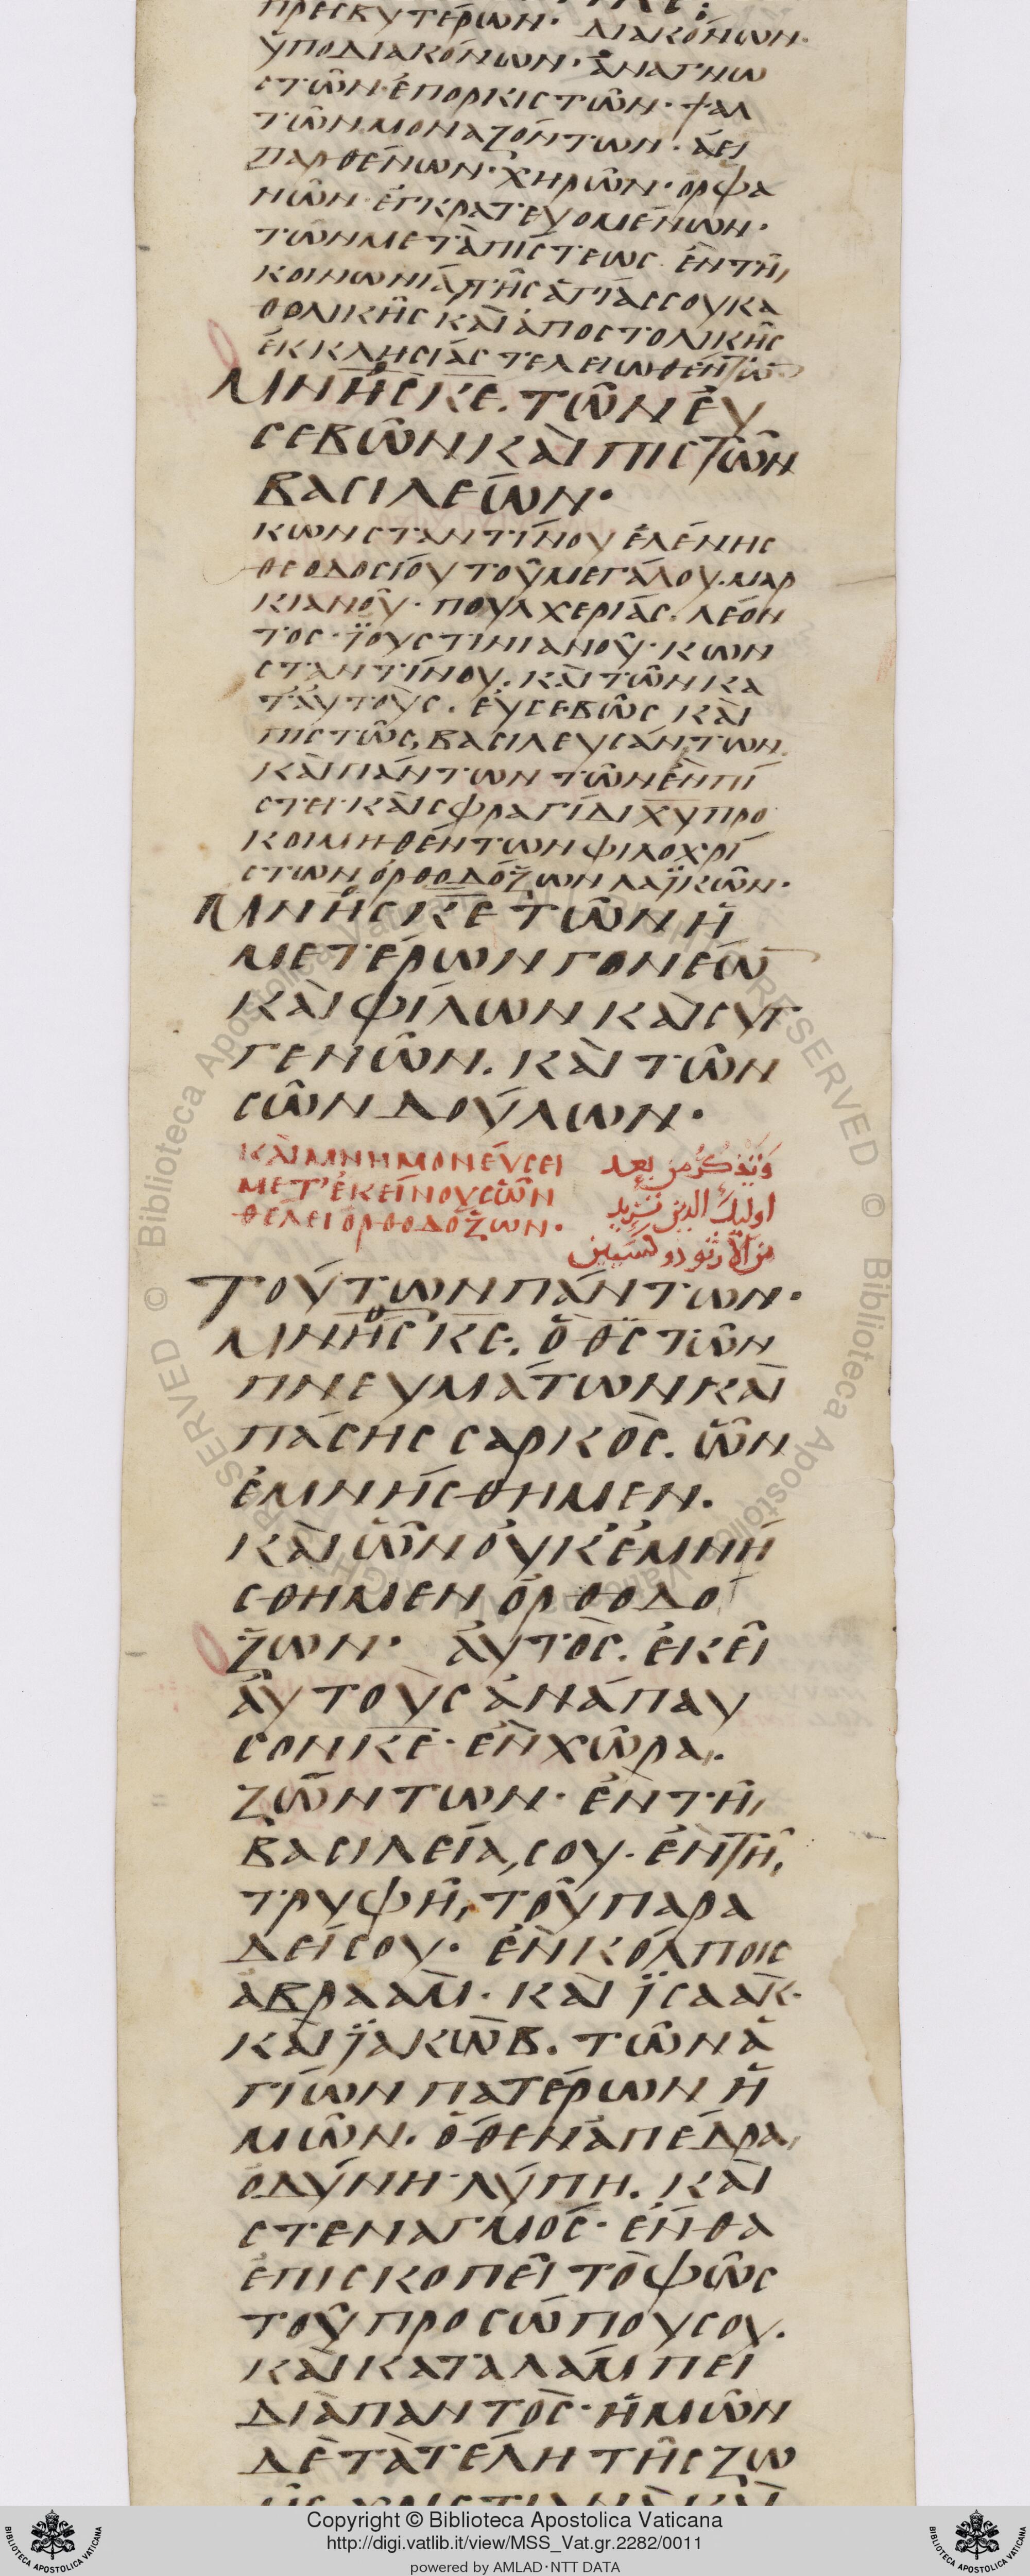 πρεσβυτέρων· διακόνων·
ὑποδιακόνων· ἀναγνω
στῶν· ἐπορκιστῶν· ψαλ
τῶν μοναζόντων· ἀει
παρθένων· χηρῶν· ορφα
νῶν· ἐγκρατευομένων·
τῶν μετὰ πίστεως ἐν τῆ
κοινωνία τῆς ἁγίας σου κα
θολικῆς καὶ ἀποστολικῆς
ἐκκλησίας τελειωθέντω
Μνήσ κε. τῶν ἐυ
σεβῶν καὶ πιστῶν
βασιλείων·
κωνσταντίνου ἑλένης
θεοδοσίου τοῦ μεγάλου. μαρ
κιανοῦ· πουλχερίας. λέον
τος· ϊουστινιανοῦ· κων
σταντίνου. καὶ τῶν κα
τ' ἀυτοὺς. ἐυσεβῶς καὶ
πιστῶς, βασιλευσάντων.
καὶ πάντων τῶν ἐν πί
στει· καὶ σφραγίδι χυ προ
κοιμηθέντων φιλοχρί
στων ὀρθοδόξων λαϊκῶν·
Μνήσ κε τῶν ἡ
μετέρων γονέω
καὶ φίλων καὶ συγ
γενῶν. καὶ τῶν
σῶν δούλων·
καὶ μνημονέυσει
μετ' ἐκείνους ὧν
θέλει ὀρθοδόξων·
وَيَذكُرُ من بعد
اوليك الذين يريد
من الأرثودوكسيين
Τούτων πάντων·
μνήσ κε. ὁ θς τῶν
πνευμάτων καὶ
πάσης σαρκὸς. ὧν
ἐμνήσθημεν.
καὶ ὧν οὐκ ἐμνή
σθημεν ὀρθοδό
ξων· ἀυτὸς. ἐκεῖ
ἀυτοὺς ἀνάπαυ
σον κε· ἐν χώρα.
ζώντων· ἐν τῆ
βασιλεία σου· ἐν τῆ
τρυφῆ τοῦ παρα
δείσου· ἐν κόλποις
ἀβραὰμ· καὶ ϊσαὰκ·
καὶ ϊακὼβ. τῶν ἁ
γίων πατέρων ἡ
μῶν. ὅθεν ἀπέδρα
ὀδύνη· λύπη. καὶ
στεναγμός· ἔνθα
ἐπισκοπεῖ τὸ φῶς
τοῦ προσώπου σου.
καὶ καταλάμπει
διὰ παντὸς· ἡμῶν
δὲ τὰ τέλη τῆς ζω
Copyright © Biblioteca Apostolica Vaticana
http://digi.vatlib.it/view/MSS_Vat.gr.2282/0011
powered by AMLAD·NTT DATA